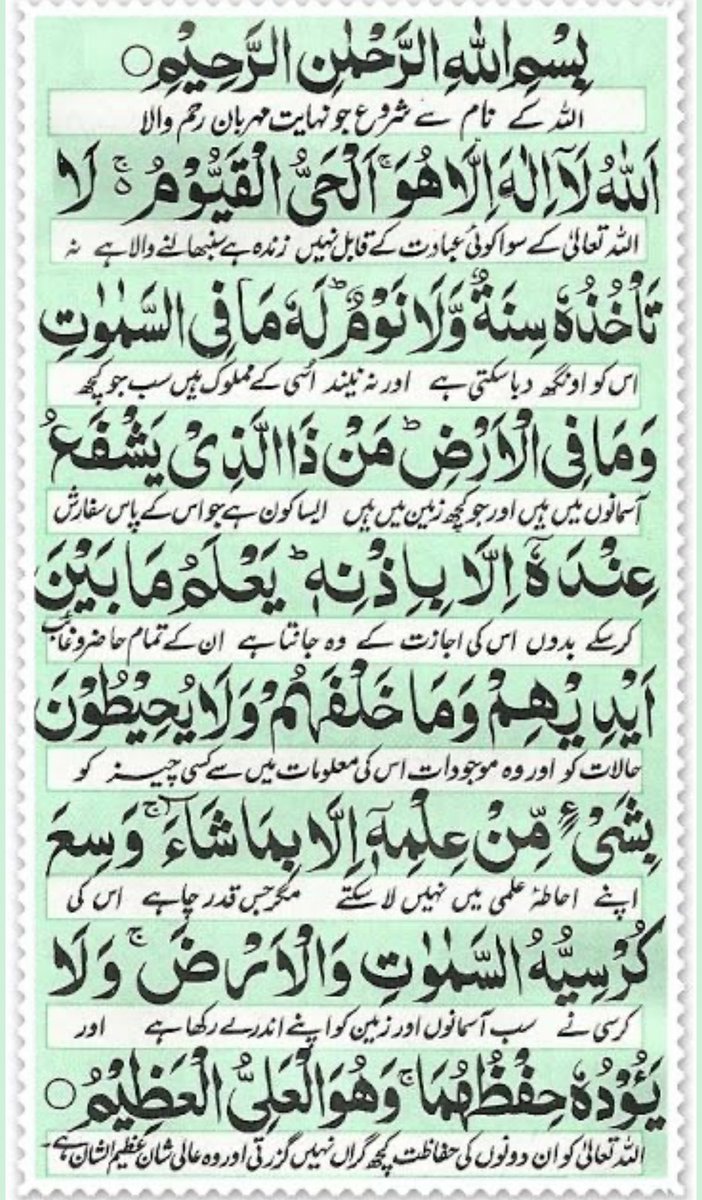 بِسْمِ اللهِ الرَّحْمٰنِ الرَّحِيْمِ ○
اللہ کے نام سے شروع جو نہایت مہربان رحم والا
اَللهُ لَآ اِلٰهَ اِلَّا هُوَ ۚ اَلْحَيُّ الْقَيُّوْمُ ۚ۬ لَا
اللہ تعالیٰ کے سوا کوئی عبادت کے قابل نہیں زندہ ہے سنبھالنے والا ہے نہ
تَاْخُذُهٗ سِنَةٌ وَّلَا نَوْمٌ ؕ لَهٗ مَا فِى السَّمٰوٰتِ
اس کو اونگھ دبا سکتی ہے اور نہ نیند اسی کے مملوک ہیں سب جو کچھ
وَمَا فِى الْاَرْضِ ؕ مَنْ ذَا الَّذِىْ يَشْفَعُ
آسمانوں میں ہیں اور جو کچھ زمین میں ہیں ایسا کون ہے جو اس کے پاس سفارش
عِنْدَهٗٓ اِلَّا بِاِذْنِهٖ ؕ يَعْلَمُ مَا بَيْنَ
کر سکے بدوں اس کی اجازت کے وہ جانتا ہے ان کے تمام حاضر و غائب
اَيْدِيْهِمْ وَمَا خَلْفَهُمْ ۚ وَلَا يُحِيْطُوْنَ
حالات کو اور وہ موجودات اس کی معلومات میں سے کسی چیز کو
بِشَىْءٍ مِّنْ عِلْمِهٖٓ اِلَّا بِمَا شَآءَ ۚ وَسِعَ
اپنے احاطۂ علمی میں نہیں لا سکتے مگر جس قدر چاہے اس کی
كُرْسِيُّهُ السَّمٰوٰتِ وَالْاَرْضَ ۚ وَلَا
کرسی نے سب آسمانوں اور زمین کو اپنے اندر لے رکھا ہے اور
يَـُٔوْدُهٗ حِفْظُهُمَا ۚ وَهُوَ الْعَلِىُّ الْعَظِيْمُ ○
اللہ تعالیٰ کو ان دونوں کی حفاظت کچھ گراں نہیں گزرتی اور وہ عالی شان عظیم الشان ہے۔